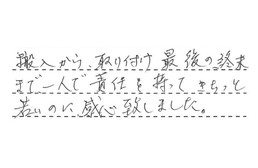 搬入から、取り付け最後の終末
まで一人で責任を持ってきちっと
若いのに感心致しました。